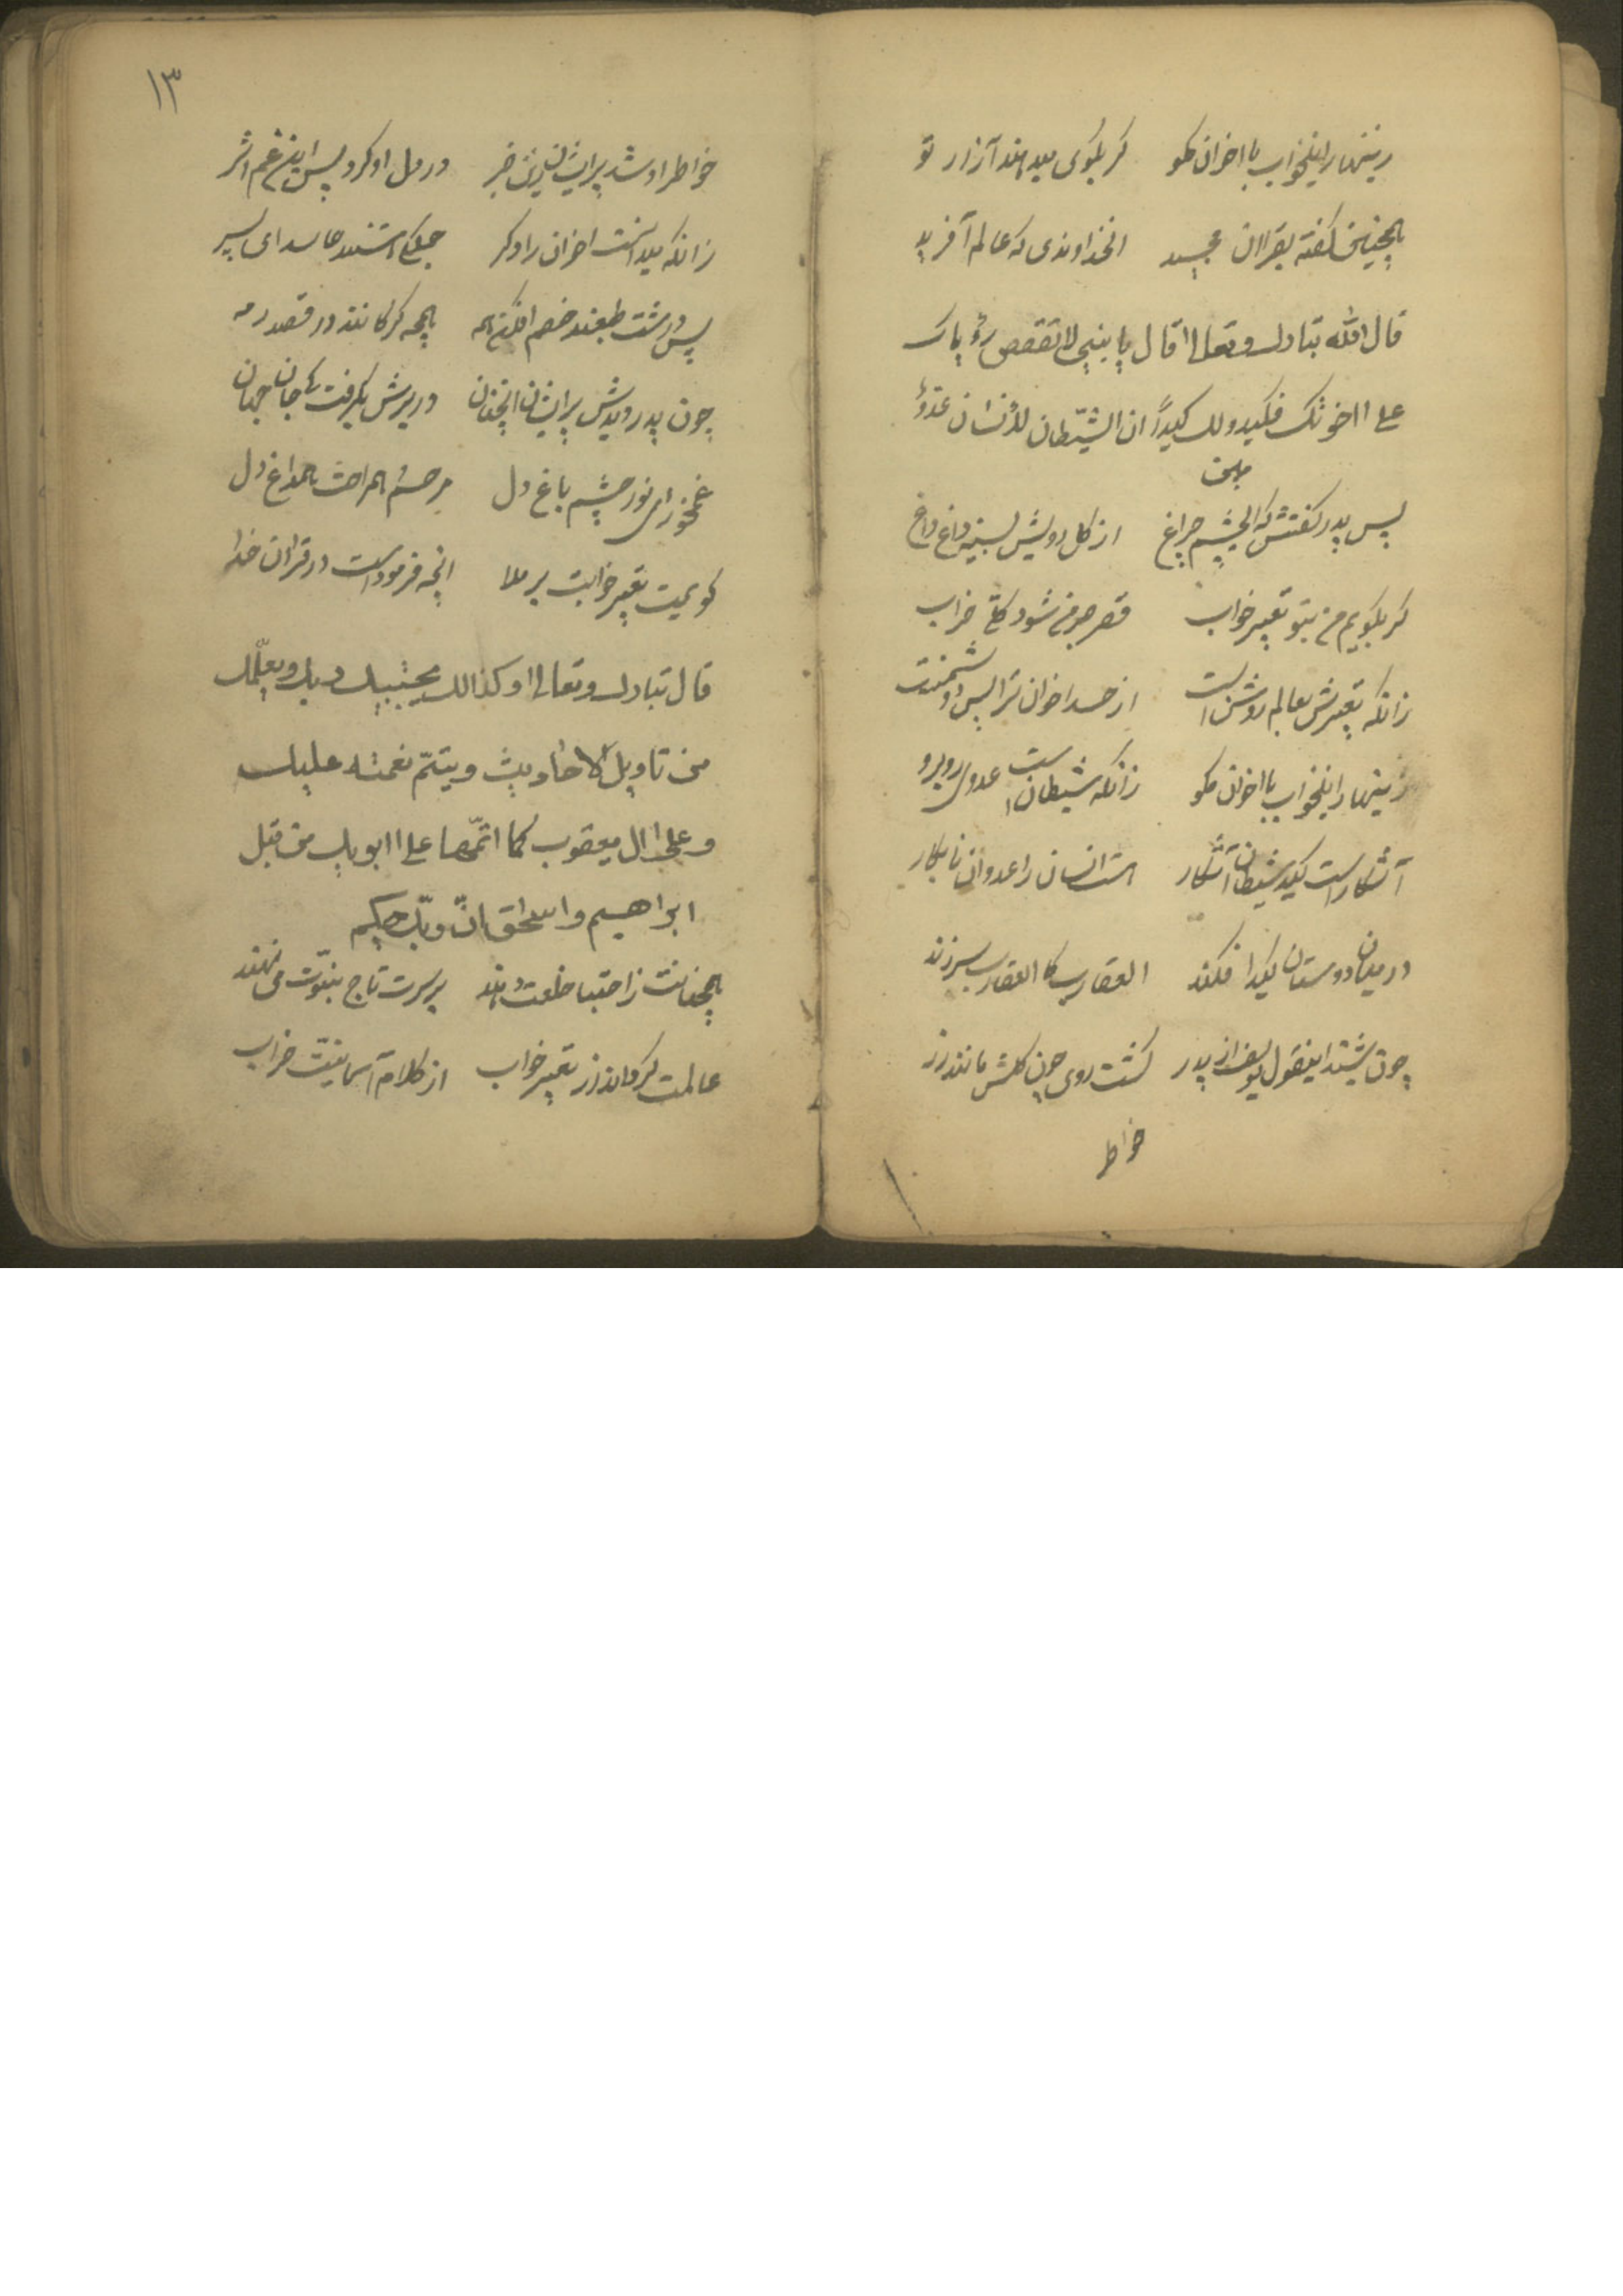 زینهار اینخواب با اخوان مکو کر بکوی میدهند آزار تو
همچنین گفته بقران مجید انخداوندی که عالم آفرید
قال الله تبارک وتعالی قال یا بنی لا تقصص رؤیاک
علی اخوتک فیکیدو لک کیداً ان الشیطان للأنسان عدوٌ
مبین
پس پدر کفتش که ایچشم چراغ از کل رویش بسینه داغ داغ
کر بکویم من بتو تعبیر خواب قصر جرخ شود کلخ خراب
زانکه تعبیرش بعالم روشن است از حسد اخوان ترا پس دشمنت
زینهار اینخواب با اخوان مکو زانکه شیطان است عدوی روبرو
آشکار است کید شیطان آشکار هست انسان را عدو ان نابکار
در میان دوستان کید افکند العقارب کالعقارب سر زند
چون شنید اینقول یوسف از پدر کشت روی چون کلش مانند زر
خواطر
۱۳
خواطر او شد پریشان زین خبر در دل او کرد پس این غم اثر
زانکه میدانست اخوان را دکر جملکی هستند حاسد ای پسر
پس درشت طبعند خصم افکن همه همچه کرکانند در قصد رمه
چون پدر دیدش پریشان انچنان در برش بکرفت جان جهان
غم مخور ای نور چشم باغ دل مرحم هم راحت هم داغ دل
کویمت تعبیر خوابت بر ملا انچه فرموده است در قران خدا
قال تبارک وتعالی وکذالک یجتبیک ربک ویعلّمک
من تاویل الاحادیث ویتمّ نعمته علیک
وعلی ال یعقوب کما اتمّها علی ابویک من قبل
ابراهیم واسحق انّ ربّک حکیم
همچنانت زاجتبا خلعت دهند بر سرت تاج نبوّت می نهند
عالمت کرداند از تعبیر خواب از کلام آسمانیت خراب